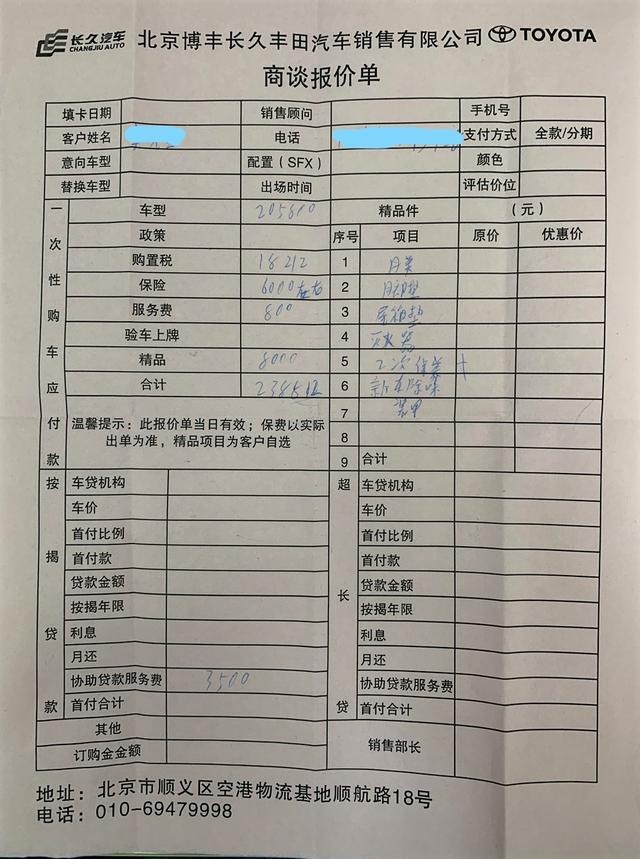 长久汽车 CHANGJIU AUTO 北京博丰长久丰田汽车销售有限公司 TOYOTA
商谈报价单
填卡日期 销售顾问 手机号
客户姓名 电话 支付方式 全款/分期
意向车型 配置（SFX） 颜色
替换车型 出场时间 评估价位
一次性购车应付款 车型 205800 精品件 （元）
政策 序号 项目 原价 优惠价
购置税 18212 1
保险 6000左右 2
服务费 800 3 尾箱垫
验车上牌 4 灭火器
精品 8000 5 2次保养
合计 6
7 装甲
温馨提示：此报价单当日有效；保费以实际
出单为准，精品项目为客户自选
8
9 合计
按揭贷款 车贷机构 超长贷 车贷机构
车价 车价
首付比例 首付比例
首付款 首付款
贷款金额 贷款金额
按揭年限 按揭年限
利息 利息
月还 月还
协助贷款服务费 3500 协助贷款服务费
首付合计 首付合计
其他 销售部长
订购金金额
地址：北京市顺义区空港物流基地顺航路18号
电话：010-69479998